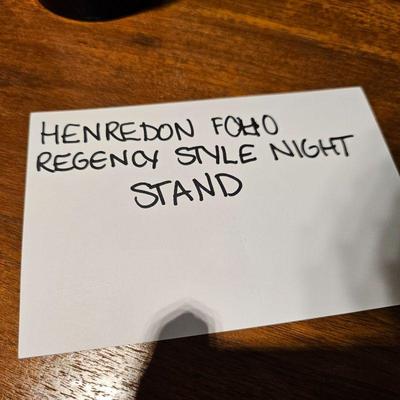 HENREDON FOLIO
REGENCY STYLE NIGHT
STAND